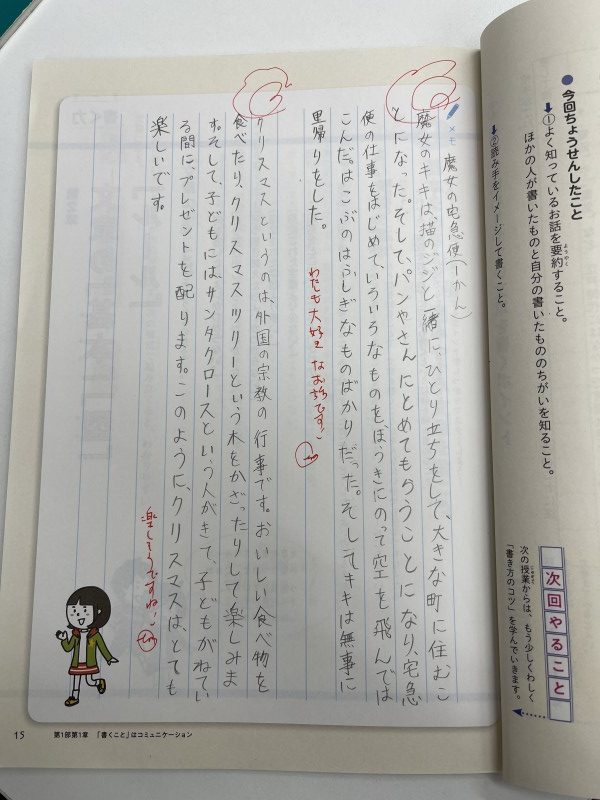 今回ちょうせんしたこと
①よく知っているお話を要約すること。
ほかの人が書いたものと自分の書いたもののちがいを知ること。
②読み手をイメージして書くこと。
次回やること
次の授業からは、もう少しくわしく
「書き方のコツ」を学んでいきます。
メモ 魔女の宅急便(一かん)
魔女のキキは、描のジジと一緒に、ひとり立ちをして、大きな町に住むこ
とになった。そして、パンやさんにとめてもらうことになり、宅急
便の仕事をはじめて、いろいろなものを、ほうきにのって空を飛んでは
こんだ。はこぶのはふしぎなものばかりだった。そしてキキは無事に
里帰りをした。
わたしも大好きなお話です!
クリスマスというのは、外国の宗教の行事です。おいしい食べ物を
食べたり、クリスマスツリーという木をかざったりして楽しみま
す。そして、子どもにはサンタクロースという人がきて、子どもがねてい
る間にプレゼントを配ります。このように、クリスマスは、とても
楽しいです。
楽しそうですね!
15 第1部第1章 「書くこと」はコミュニケーション